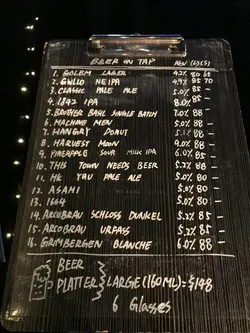 BEER ON TAP ABV (G) (S)
1. GOLEM LAGER 4.2% 80 65
2. GWILO NEIPA 4.9% 95 70
3. CLASSIC PALE ALE 5.0% 85 —
4. 1842 IPA 8.0% 85 —
5. BROTHER BASIL SINGLE BATCH 7.0% 88 —
6. MACHINE MEN 5.0% 88 —
7. HANGRY DONUT 5.1% 88 —
8. HARVEST MOON 9.0% 88 —
9. PINEAPPLE SOUR MILK IPA 6.0% 85 —
10. THIS TOWN NEEDS BEER 5.2% 88 —
11. HK YAU PALE ALE 5.0% 80 —
12. ASAHI 5.0% 80 —
13. 1664 5.0% 85 —
14. ARCOBRAU SCHLOSS DUNKEL 5.2% 85 —
15. ARCOBRAU URFASS 5.2% 85 —
16. GRIMBERGEN BLANCHE 6.0% 88 —
BEER
PLATTER LARGE (160ML) = $148
6 Glasses